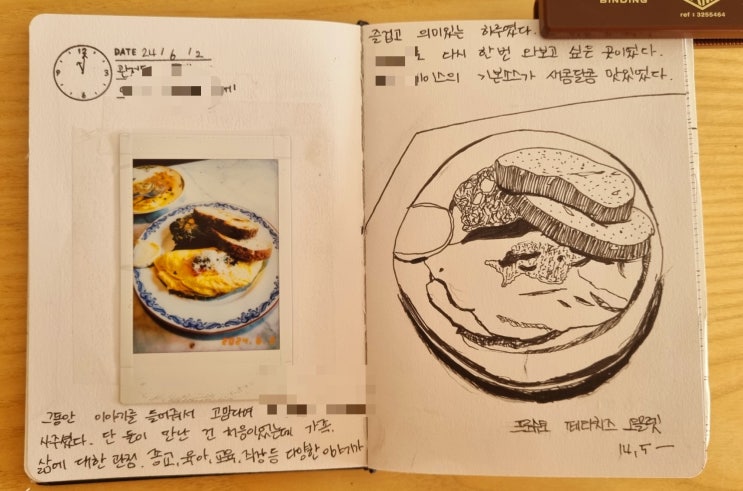 12
3
6
9
DATE 24 / 6 / 2
그동안 이야기를 들어줘서 고맙다며
사주셨다. 단 둘이 만난 건 처음이었는데 가족,
삶에 대한 관점, 종교, 육아, 교육, 직장 등 다양한 이야기가
2024.6.2
BINDING
ref : 3255464
즐겁고 의미있는 하루였다.
도 다시 한번 와보고 싶은 곳이었다.
이스의 기본소스가 새콤달콤 맛있었다.
페타치즈 오믈렛
14,5-